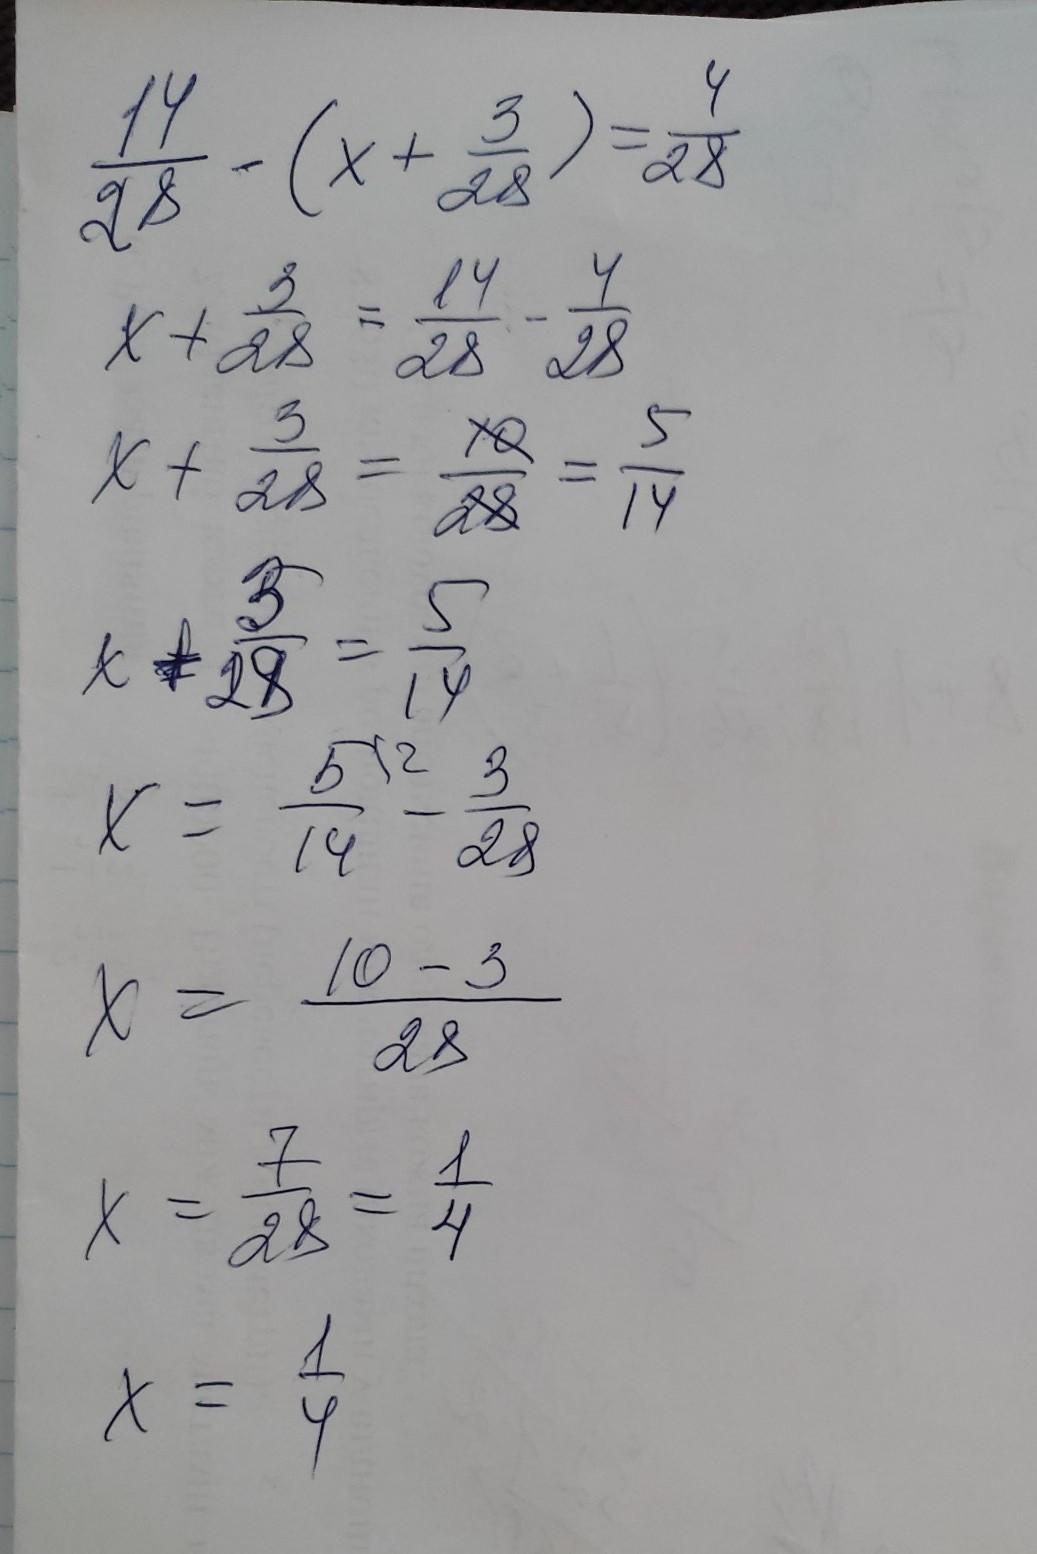 14/28 - (x + 3/28) = 4/28
x + 3/28 = 14/28 - 4/28
x + 3/28 = 10/28 = 5/14
x + 3/28 = 5/14
x = 5\2/14 - 3/28
x = 10 - 3/28
x = 7/28 = 1/4
x = 1/4